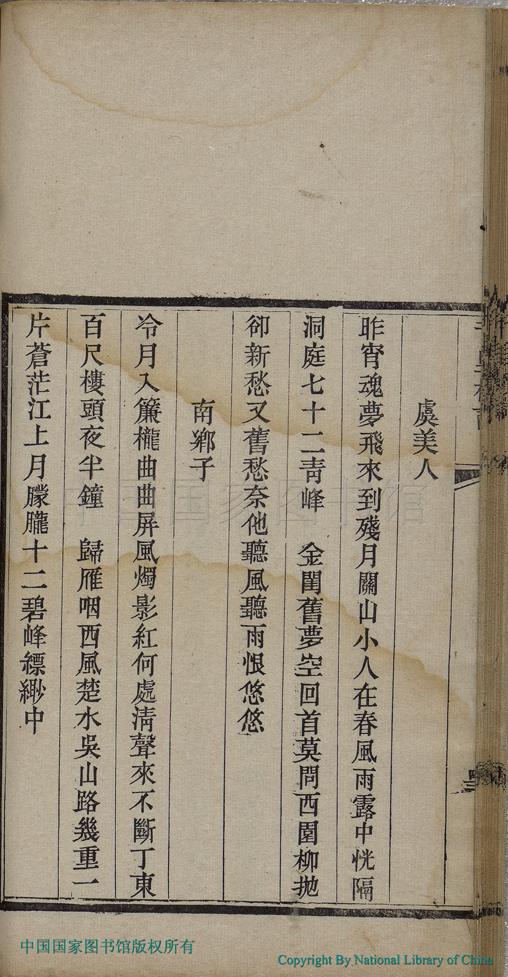 虞美人
昨宵魂夢飛來到殘月關山小人在春風雨露中恍隔
洞庭七十二靑峰　金閨舊夢空回首莫問西園柳拋
卻新愁又舊愁奈他聽風聽雨恨悠悠
南鄉子
冷月入簾櫳曲曲屏風燭影紅何處淸聲來不斷丁東
百尺樓頭夜半鐘　歸雁咽西風楚水吳山路幾重一
片蒼茫江上月朦朧十二碧峰縹緲中
中国国家图书馆版权所有
Copyright By National Library of China